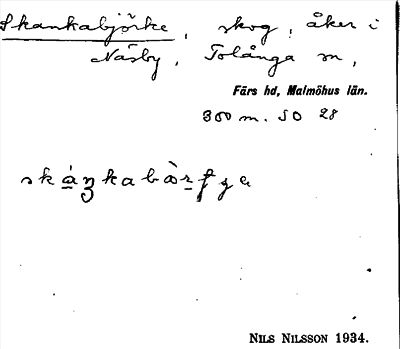 Skankabjörke, skog, åker i
Näsby, Tolånga sn,
Färs hd, Malmöhus län.
300 m. SO 28
NILS NILSSON 1934.